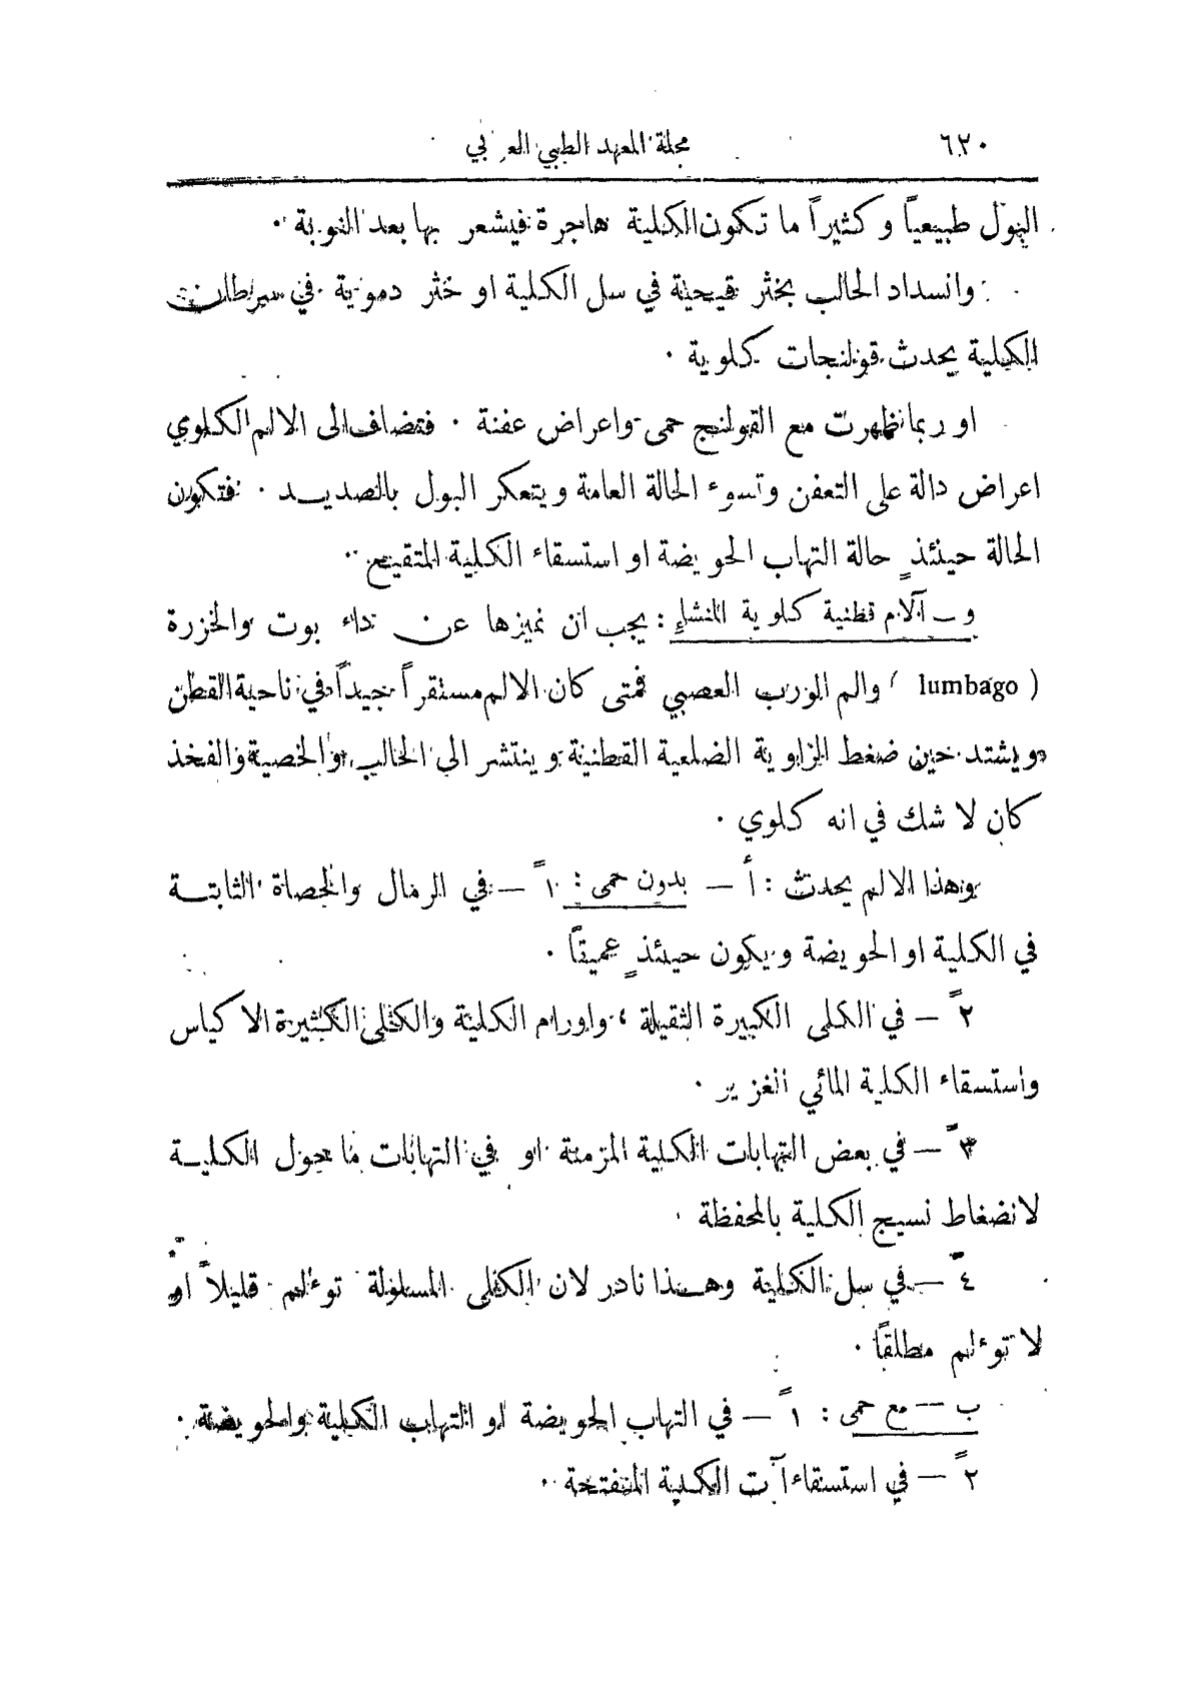 ٦٢٠ مجلة المعهد الطبي العربي
البول طبيعياً وكثيراً ما تكون الكلية هاجرة فيشعر بها بعد النوبة .
وانسداد الحالب بخثر قيحية في سل الكلية او خثر دموية في سرطان
الكلية يحدث قولنجات كلوية .
او ربما ظهرت مع القولنج حمى واعراض عفنة . فتضاف الى الالم الكلوي
اعراض دالة على التعفن وتسوء الحالة العامة ويتعكر البول بالصديد . فتكون
الحالة حينئذٍ حالة التهاب الحويضة او استسقاء الكلية المتقيح .
و ـ آلام قطنية كلوية المنشإِ : يجب ان نميزها عن داء بوت والخزرة
( lumbago ) والم الورب العصبي فمتى كان الالم مستقراً جيداً في ناحية القطن
ويشتد حين ضغط الزاوية الضلعية القطنية وينتشر الى الحالب والخصية والفخذ
كان لا شك في انه كلوي .
وهذا الالم يحدث : أ — بدون حمى : ١ً — في الرمال والحصاة الثابتة
في الكلية او الحويضة ويكون حينئذٍ عميقاً .
٢ً — في الكلى الكبيرة الثقيلة ، واورام الكلية والكلى الكثيرة الاكياس
واستسقاء الكلية المائي الغزير .
٣ً — في بعض التهابات الكلية المزمنة او في التهابات ما حول الكلية
لانضغاط نسيج الكلية بالمحفظة .
٤ً — في سل الكلية وهذا نادر لان الكلى المسلولة توءلم قليلاً او
لا توءلم مطلقاً .
ب — مع حمى : ١ً — في التهاب الحويضة او التهاب الكلية والحويضة .
٢ً — في استسقاءآت الكلية المنفتحة .